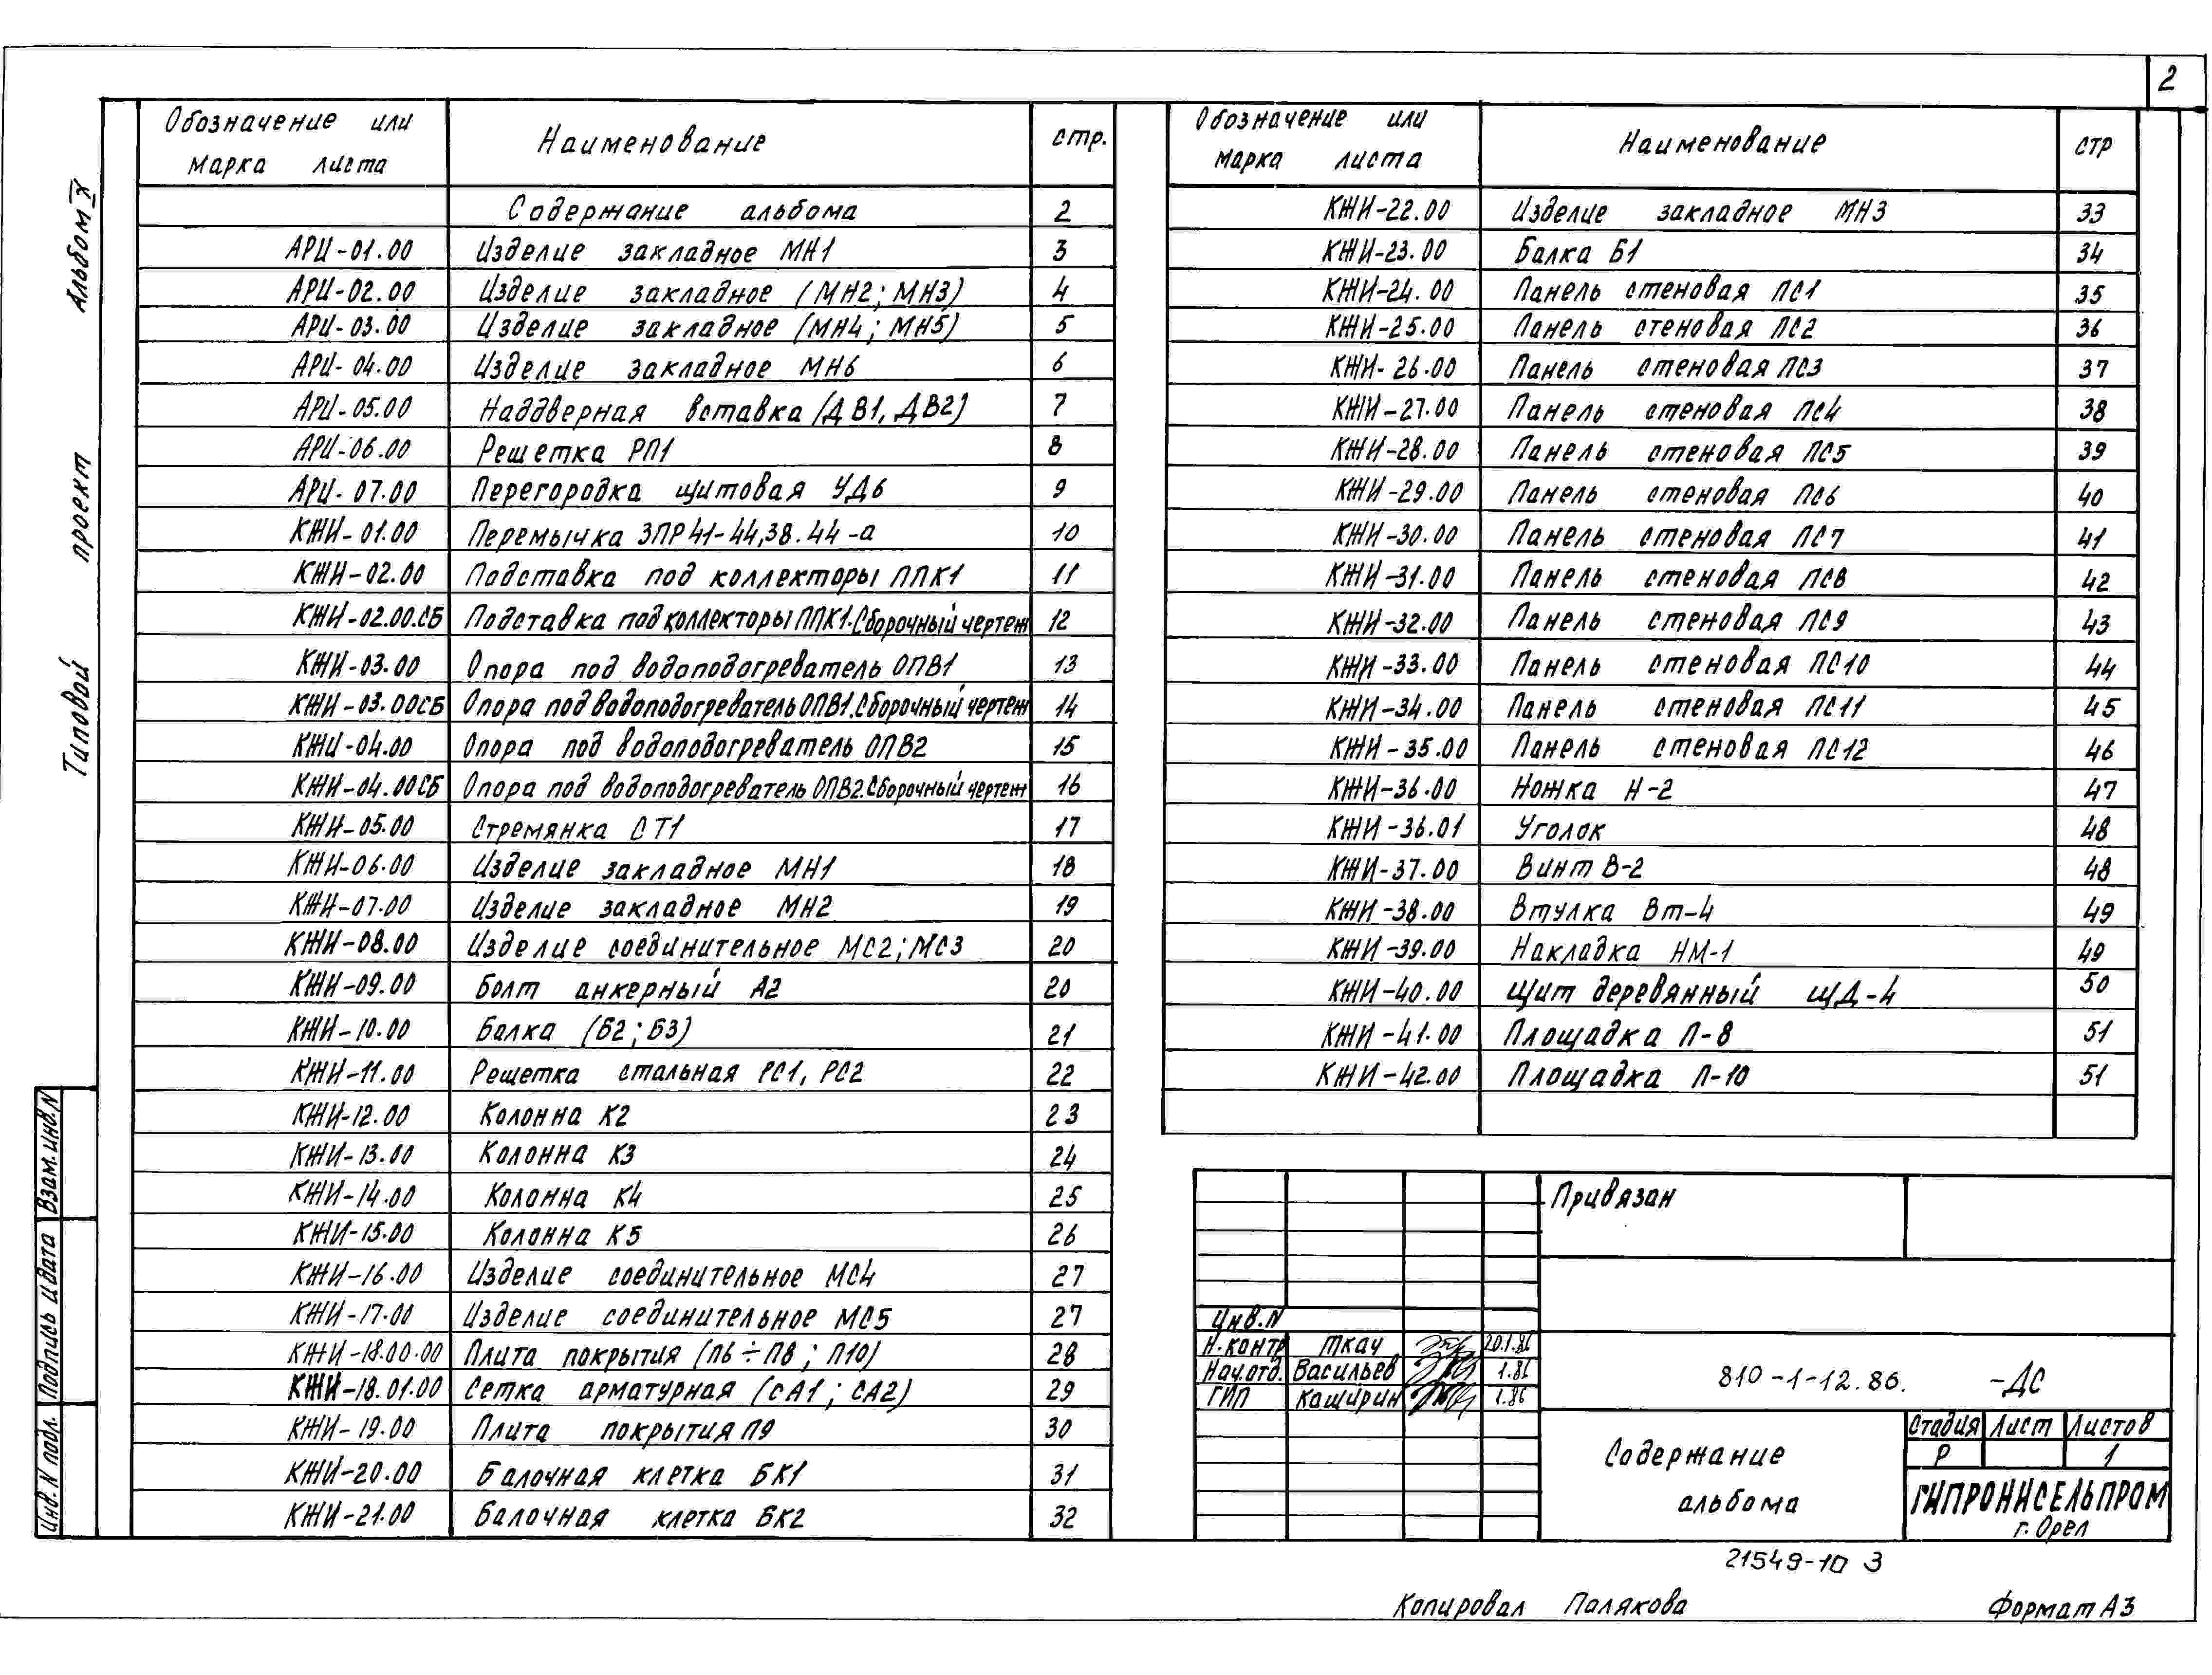 2
Альбом IX
Типовой проект
Обозначение или марка листа Наименование стр.
Содержание альбома 2
АРИ-01.00 Изделие закладное МН1 3
АРИ-02.00 Изделие закладное (МН2; МН3) 4
АРИ-03.00 Изделие закладное (МН4; МН5) 5
АРИ-04.00 Изделие закладное МН6 6
АРИ-05.00 Наддверная вставка (ДВ1, ДВ2) 7
АРИ-06.00 Решетка РП1 8
АРИ-07.00 Перегородка щитовая УД6 9
КЖИ-01.00 Перемычка 3ПР41-44,38.44-а 10
КЖИ-02.00 Подставка под коллекторы ППК1 11
КЖИ-02.00.СБ Подставка под коллекторы ППК1.Сборочный чертеж 12
КЖИ-03.00 Опора под водоподогреватель ОПВ1 13
КЖИ-03.00СБ Опора под водоподогреватель ОПВ1.Сборочный чертеж 14
КЖИ-04.00 Опора под водоподогреватель ОПВ2 15
КЖИ-04.00СБ Опора под водоподогреватель ОПВ2.Сборочный чертеж 16
КЖИ-05.00 Стремянка СТ1 17
КЖИ-06.00 Изделие закладное МН1 18
КЖИ-07.00 Изделие закладное МН2 19
КЖИ-08.00 Изделие соединительное МС2; МС3 20
КЖИ-09.00 Болт анкерный А2 20
КЖИ-10.00 Балка (Б2; Б3) 21
КЖИ-11.00 Решетка стальная РС1, РС2 22
КЖИ-12.00 Колонна К2 23
КЖИ-13.00 Колонна К3 24
КЖИ-14.00 Колонна К4 25
КЖИ-15.00 Колонна К5 26
КЖИ-16.00 Изделие соединительное МС4 27
КЖИ-17.00 Изделие соединительное МС5 27
КЖИ-18.00.00 Плита покрытия (П6÷П8; П10) 28
КЖИ-18.01.00 Сетка арматурная (СА1; СА2) 29
КЖИ-19.00 Плита покрытия П9 30
КЖИ-20.00 Балочная клетка БК1 31
КЖИ-21.00 Балочная клетка БК2 32
Обозначение или марка листа Наименование стр
КЖИ-22.00 Изделие закладное МН3 33
КЖИ-23.00 Балка Б1 34
КЖИ-24.00 Панель стеновая ПС1 35
КЖИ-25.00 Панель стеновая ПС2 36
КЖИ-26.00 Панель стеновая ПС3 37
КЖИ-27.00 Панель стеновая ПС4 38
КЖИ-28.00 Панель стеновая ПС5 39
КЖИ-29.00 Панель стеновая ПС6 40
КЖИ-30.00 Панель стеновая ПС7 41
КЖИ-31.00 Панель стеновая ПС8 42
КЖИ-32.00 Панель стеновая ПС9 43
КЖИ-33.00 Панель стеновая ПС10 44
КЖИ-34.00 Панель стеновая ПС11 45
КЖИ-35.00 Панель стеновая ПС12 46
КЖИ-36.00 Ножка Н-2 47
КЖИ-36.01 Уголок 48
КЖИ-37.00 Винт В-2 48
КЖИ-38.00 Втулка Вт-4 49
КЖИ-39.00 Накладка НМ-1 49
КЖИ-40.00 Щит деревянный ЩД-4 50
КЖИ-41.00 Площадка П-8 51
КЖИ-42.00 Площадка П-10 51
Взам. инв. N
Подпись и дата
Инв. N подл.
Привязан
Инв. N
Н. контр Ткач 20.1.86
Нач. отд. Васильев 1.86
ГИП Каширин 1.86
810-1-12.86. -ДС
Содержание альбома
Стадия Лист Листов
Р 1
ГИПРОНИСЕЛЬПРОМ
г. Орел
21549-10 3
Копировал Палякова Формат А3